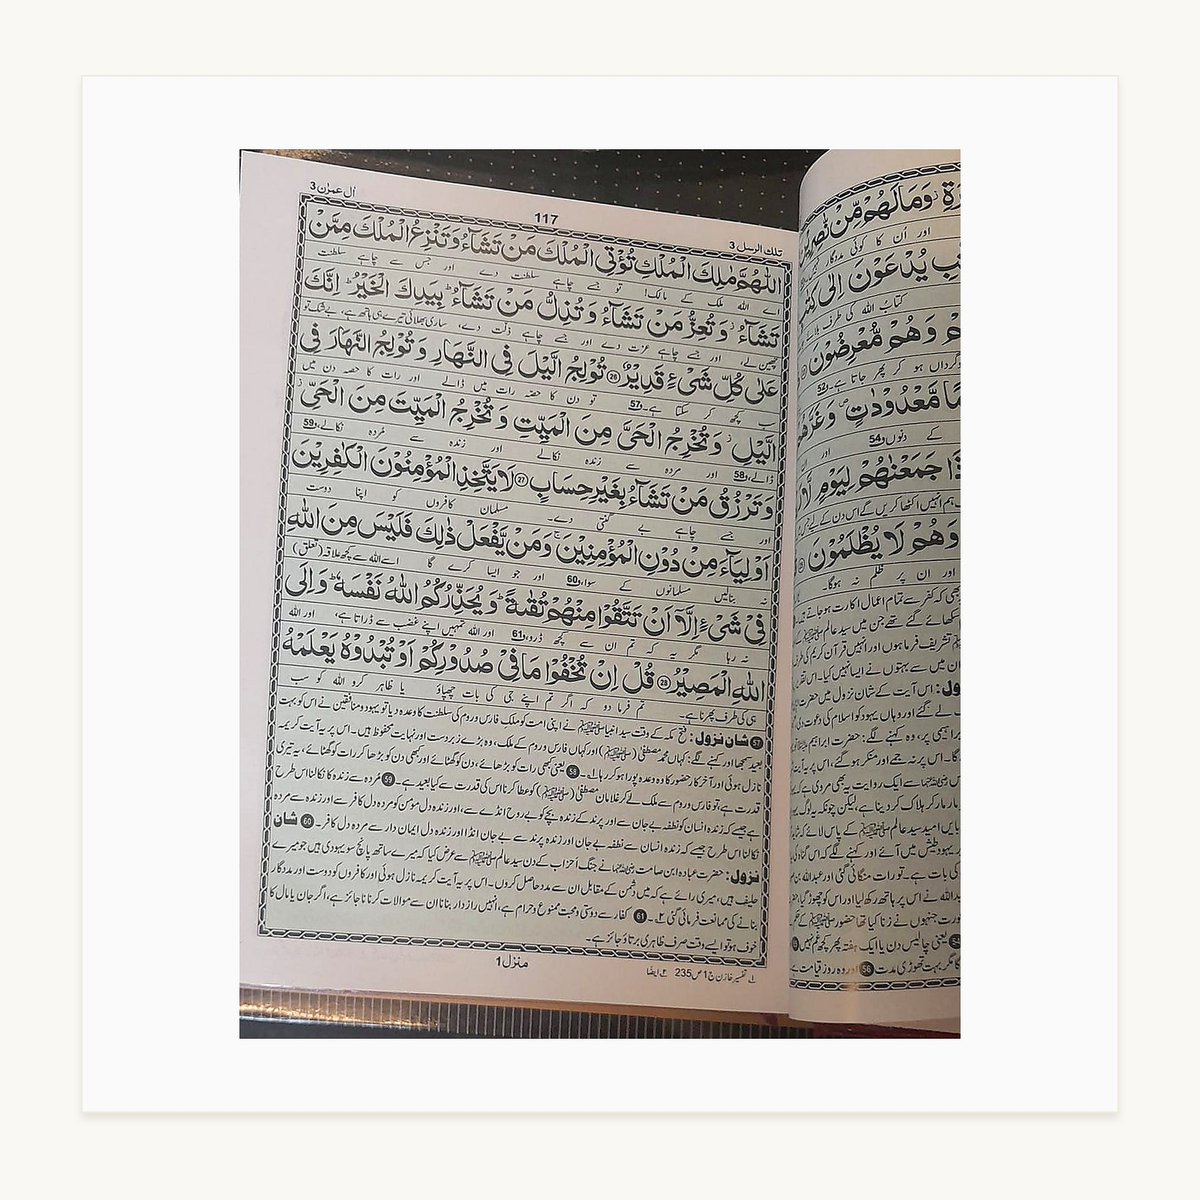 اٰل عمرٰن 3
117
تلك الرسل 3
اللّٰهُمَّ مٰلِكَ الْمُلْكِ تُؤْتِی الْمُلْكَ مَنْ تَشَآءُ وَتَنْزِعُ الْمُلْكَ مِمَّنْ
اے اللہ ملک کے مالک! تو جسے چاہے سلطنت دے اور جس سے چاہے سلطنت
تَشَآءُ ؗ وَتُعِزُّ مَنْ تَشَآءُ وَتُذِلُّ مَنْ تَشَآءُ ؕ بِیَدِكَ الْخَیْرُ ؕ اِنَّكَ
چھین لے، اور جسے چاہے عزت دے اور جسے چاہے ذلت دے، ساری بھلائی تیرے ہی ہاتھ ہے، بے شک تو
عَلٰی كُلِّ شَیْءٍ قَدِیْرٌ ﴿26﴾ تُوْلِجُ الَّیْلَ فِی النَّهَارِ وَتُوْلِجُ النَّهَارَ فِی
سب کچھ کر سکتا ہے۔ و57 تو دن کا حصّہ رات میں ڈالے اور رات کا حصہ دن میں
الَّیْلِ ؗ وَتُخْرِجُ الْحَیَّ مِنَ الْمَیِّتِ وَتُخْرِجُ الْمَیِّتَ مِنَ الْحَیِّ ؗ
ڈالے، و58 اور مردہ سے زندہ نکالے اور زندہ سے مُردہ نکالے، و59
وَتَرْزُقُ مَنْ تَشَآءُ بِغَیْرِ حِسَابٍ ﴿27﴾ لَا یَتَّخِذِ الْمُؤْمِنُوْنَ الْكٰفِرِیْنَ
اور جسے چاہے بے گنتی دے۔ مسلمان کافروں کو اپنا دوست
اَوْلِیَآءَ مِنْ دُوْنِ الْمُؤْمِنِیْنَ ۚ وَمَنْ یَّفْعَلْ ذٰلِكَ فَلَیْسَ مِنَ اللّٰهِ
نہ بنالیں مسلمانوں کے سوا، و60 اور جو ایسا کرے گا اسے اللہ سے کچھ علاقہ (تعلق)
فِیْ شَیْءٍ اِلَّاۤ اَنْ تَتَّقُوْا مِنْهُمْ تُقٰىةً ؕ وَیُحَذِّرُكُمُ اللّٰهُ نَفْسَهٗ ؕ وَاِلَی
نہ رہا مگر یہ کہ تم ان سے کچھ ڈرو، و61 اور اللہ تمہیں اپنے غضب سے ڈراتا ہے، اور اللہ
اللّٰهِ الْمَصِیْرُ ﴿28﴾ قُلْ اِنْ تُخْفُوْا مَا فِیْ صُدُوْرِكُمْ اَوْ تُبْدُوْهُ یَعْلَمْهُ
ہی کی طرف پھرنا ہے۔ تم فرما دو کہ اگر تم اپنے جی کی بات چھپاؤ یا ظاہر کرو اللہ کو سب
57 شان نزول: فتح مکہ کے وقت سید انبیا ﷺ نے اپنی امت کو ملک فارس و روم کی سلطنت کا وعدہ دیا تو یہود و منافقین نے اس کو بہت
بعید سمجھا اور کہنے لگے: کہاں محمد مصطفٰی (ﷺ) اور کہاں فارس و روم کے ملک، وہ بڑے زبردست اور نہایت محفوظ ہیں۔ اس پر یہ آیت کریمہ
نازل ہوئی اور آخر کار حضور کا وہ وعدہ پورا ہو کر رہا۔ 58 یعنی کبھی رات کو بڑھائے، دن کو گھٹائے اور کبھی دن کو بڑھا کر رات کو گھٹائے، یہ تیری
قدرت ہے، تو فارس و روم سے ملک لے کر غلامان مصطفٰی (ﷺ) کو عطا کرنا اس کی قدرت سے کیا بعید ہے۔ 59 مردہ سے زندہ کا نکالنا اس طرح
ہے جیسے کہ زندہ انسان کو نطفہ بے جان سے اور پرند کے زندہ بچے کو بے روح انڈے سے، اور زندہ دل مؤمن کو مردہ دل کافر سے اور زندہ سے مردہ
نکالنا اس طرح جیسے کہ زندہ انسان سے نطفہ بے جان اور زندہ پرند سے بے جان انڈا اور زندہ دل ایمان دار سے مردہ دل کافر۔ 60 شان
نزول: حضرت عبادہ ابن صامت نے جنگ احزاب کے دن سید عالم ﷺ سے عرض کیا کہ میرے ساتھ پانچ سو یہودی ہیں جو میرے
حلیف ہیں، میری رائے ہے کہ میں دشمن کے مقابل ان سے مدد حاصل کروں۔ اس پر یہ آیت کریمہ نازل ہوئی اور کافروں کو دوست اور مددگار
بنانے کی ممانعت فرمائی گئی۔ 61 کفار سے دوستی و محبت ممنوع و حرام ہے، انہیں راز دار بنانا ان سے موالات کرنا ناجائز ہے، اگر جان یا مال کا
خوف ہو تو ایسے وقت صرف ظاہری برتاؤ جائز ہے۔
منزل 1
تفسیر خازن ج 1 ص 235 ایضا
وَمَا لَهُمْ مِّنْ
اور اُن کا کوئی مددگار
یُدْعَوْنَ اِلٰی
کتابُ اللہ کی طرف
وَهُمْ مُّعْرِضُوْنَ
ہو کر پھر جاتا ہے۔ و52
مَّعْدُوْدٰتٍ ۪ وَغَرَّهُمْ
کے دنوں و54 اور
جَمَعْنٰهُمْ لِیَوْمٍ لَّا
ہم انہیں اکٹھا کریں گے اس دن کے لیے
وَهُمْ لَا یُظْلَمُوْنَ
اور ان پر ظلم نہ ہوگا۔